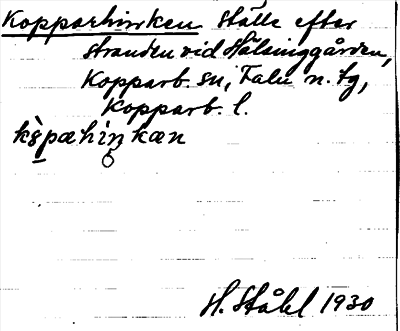 Kopparhinken ställe efter
stranden vid Hälsinggården,
Kopparb. sn, Falu n. tg,
Kopparb. l.
kɞ̀pæhìŋkæn
H. Ståhl 1930